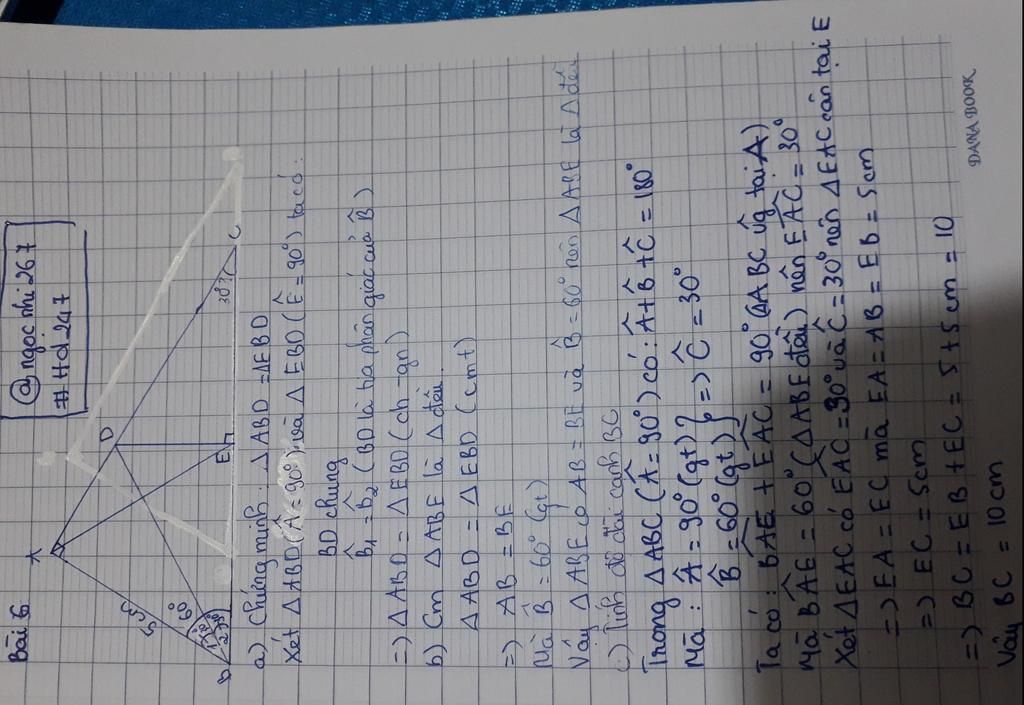 @ngọc nhi 267
#Hd 247
Bài 6
A
D
B
E
C
5cm
60°
30°?
a) Chứng minh: ΔABD = ΔEBD
Xét ΔABD (Â = 90°) và ΔEBD (Ê = 90°) ta có:
BD chung
B̂₁ = B̂₂ (BD là tia phân giác của B̂)
=> ΔABD = ΔEBD (ch-gn)
b) Cm ΔABE là Δ đều.
ΔABD = ΔEBD (cmt)
=> AB = BE
Mà B̂ = 60° (gt)
Vậy ΔABE có AB = BE và B̂ = 60° nên ΔABE là Δ đều
c) Tính độ dài cạnh BC
Trong ΔABC (Â = 90°) có: Â + B̂ + Ĉ = 180°
Mà: Â = 90° (gt) } => Ĉ = 30°
B̂ = 60° (gt)
Ta có: BÂE + EÂC = 90° (ΔABC vg tại A)
Mà BÂE = 60° (ΔABE đều) nên EÂC = 30°
Xét ΔEAC có EÂC = 30° và Ĉ = 30° nên ΔEAC cân tại E
=> EA = EC mà EA = AB = EB = 5cm
=> EC = 5cm
=> BC = EB + EC = 5 + 5cm = 10
Vậy BC = 10cm
DANA BOOK